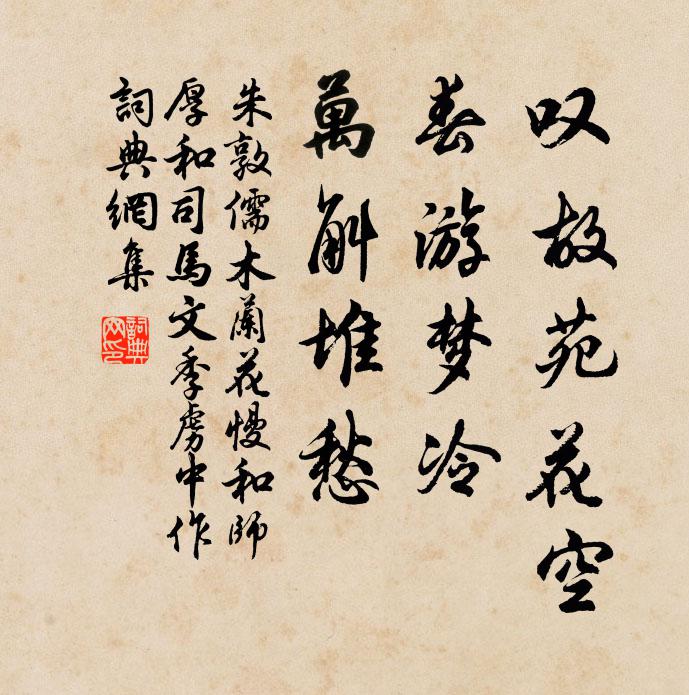 叹故苑花空
春游梦冷
萬斛堆愁
朱敦儒木蘭花慢和師
厚和司馬文季虜中作
詞典網集
詞典网印